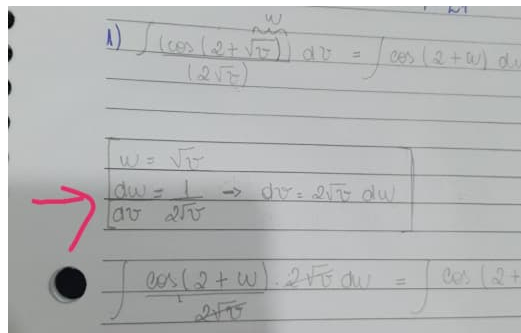 w
1) ∫ (cos(2 + √v)) / (2√v) dv = ∫ cos(2 + w) dw
w = √v
dw/dv = 1/(2√v) → dv = 2√v dw
∫ cos(2 + w)/(2√v) · 2√v dw = ∫ cos(2 +